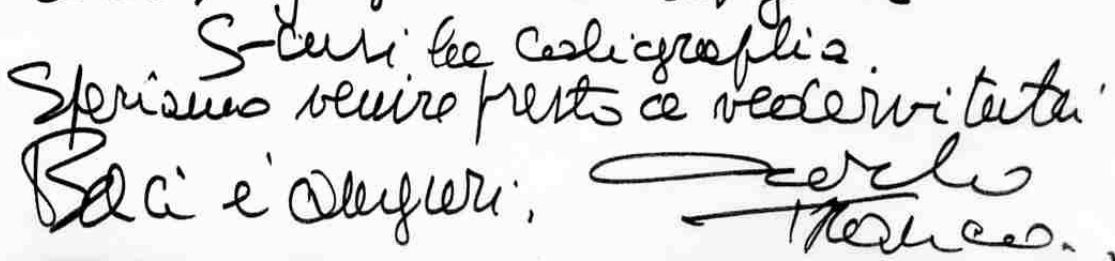 S-cusi la caligraphia.
Speriamo venire presto a vedervi tutti
Baci e auguri.
Franca.